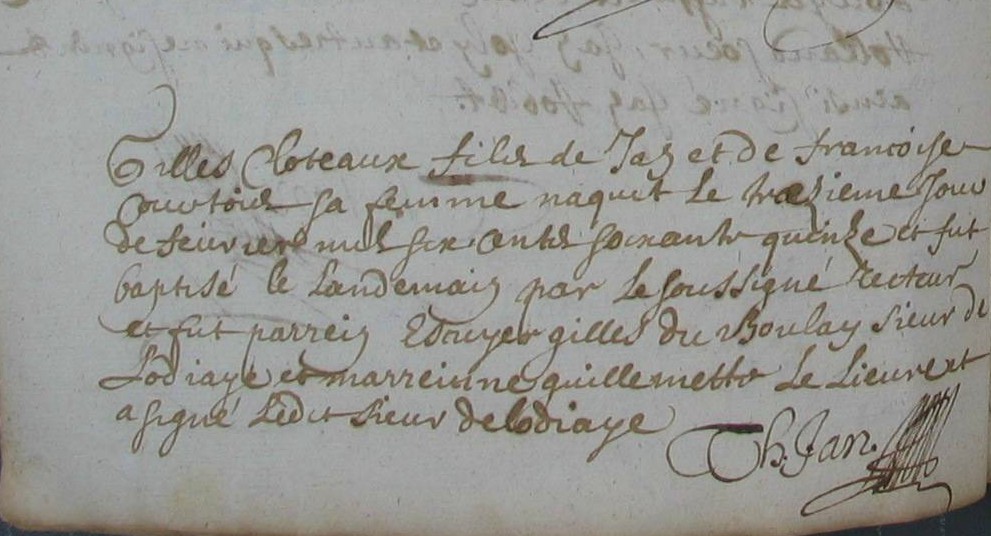 Gilles Cloteaux filz de Jaq et de francoise
Courtoiz sa femme naquit le trezieme Jour
de feuvrier mil six centz soixante quinze et fut
baptisé le landemain par le soussigné recteur
et fut parrein Ecuyer gilles du Boulay Sieur de
Lodiaye et marreinne guillemette Le Lieuvre et
a signé ledit Sieur de lodiaye
Th. Jan.